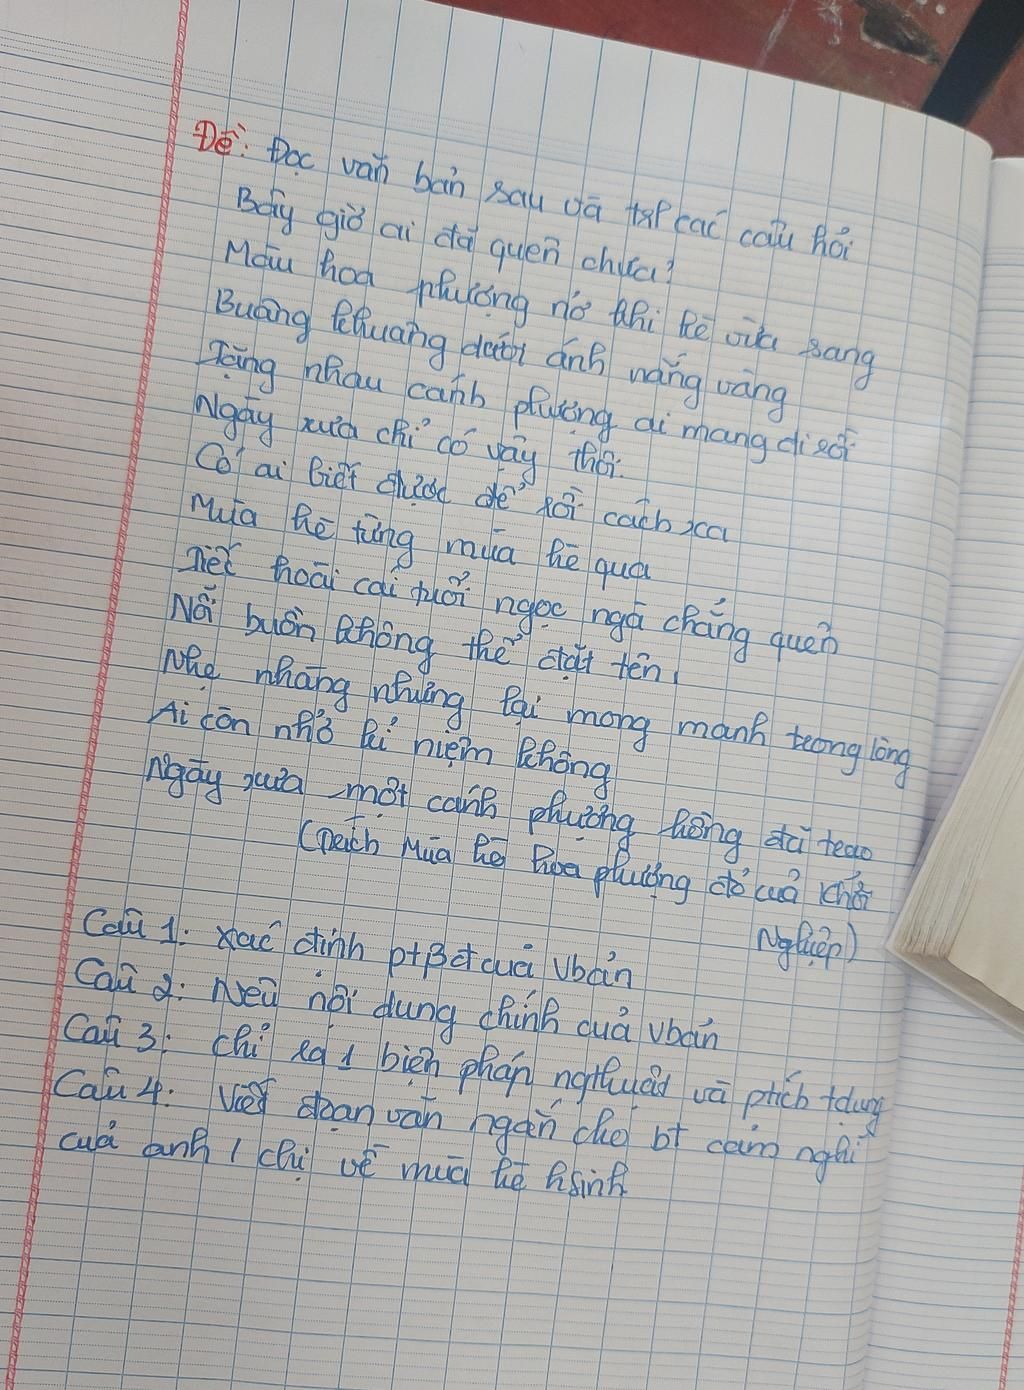 Đề: Đọc văn bản sau và trl các câu hỏi
Bây giờ ai đã quên chưa?
Màu hoa phượng nở khi hè vừa sang
Buâng khuâng dưới ánh nắng vàng
Tặng nhau cánh phượng ai mang đi rồi
Ngày xưa chỉ có vậy thôi.
Có ai biết được để rồi cách xa
Mùa hè từng mùa hè qua
Tiếc hoài cái tuổi ngọc ngà chẳng quên
Nỗi buồn không thể đặt tên,
Nhẹ nhàng nhưng lại mong manh trong lòng
Ai còn nhớ kỉ niệm không
Ngày xưa một cánh phượng hồng đã trao
(Trích Mùa hè hoa phượng đỏ của
Nghiệp)
Câu 1: Xác định ptBđ của Vbản
Câu 2: Nêu nội dung chính của Vbản
Câu 3: Chỉ ra 1 biện pháp nghthuật và ptích tdụng
Câu 4: Viết đoạn văn ngắn cho bt cảm nghĩ
của anh / chị về mùa hè hsinh